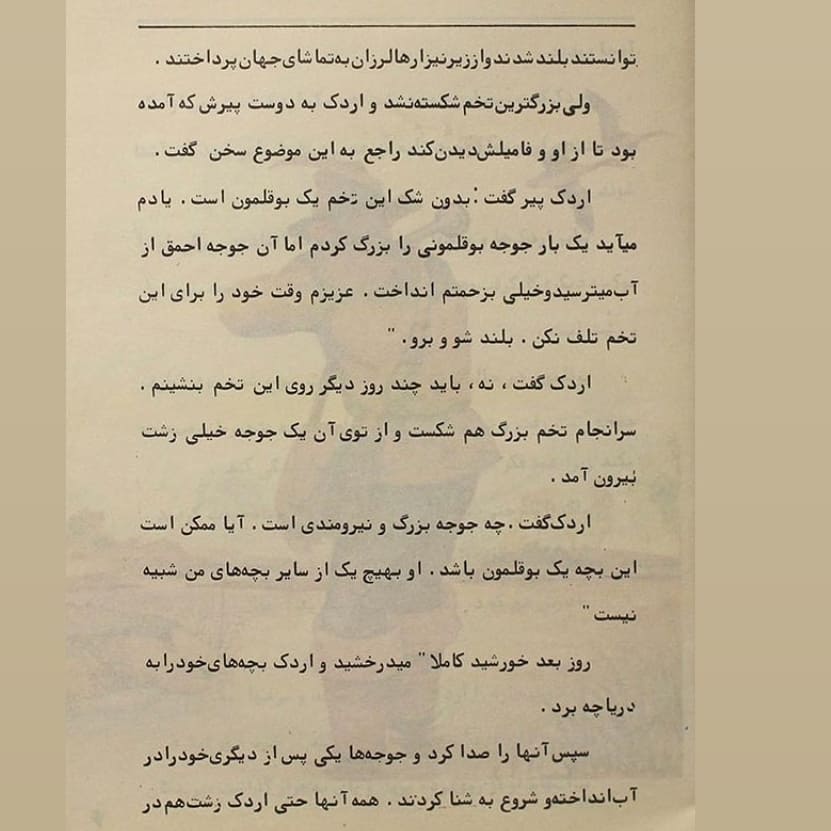 توانستند بلند شدند و از زیر نیزارها لرزان به تماشای جهان پرداختند .
ولی بزرگترین تخم شکسته نشد و اردک به دوست پیرش که آمده
بود تا از او و فامیلش دیدن کند راجع به این موضوع سخن گفت .
اردک پیر گفت : بدون شک این تخم یک بوقلمون است . یادم
میآید یک بار جوجه بوقلمونی را بزرگ کردم اما آن جوجه احمق از
آب میترسید و خیلی بزحمتم انداخت . عزیزم وقت خود را برای این
تخم تلف نکن . بلند شو و برو . "
اردک گفت ، نه ، باید چند روز دیگر روی این تخم بنشینم .
سرانجام تخم بزرگ هم شکست و از توی آن یک جوجه خیلی زشت
بیرون آمد .
اردک گفت . چه جوجه بزرگ و نیرومندی است . آیا ممکن است
این بچه یک بوقلمون باشد . او بهیچ یک از سایر بچه‌های من شبیه
نیست "
روز بعد خورشید کاملا " میدرخشید و اردک بچه‌های خود را به
دریاچه برد .
سپس آنها را صدا کرد و جوجه‌ها یکی پس از دیگری خود را در
آب انداخته و شروع به شنا کردند . همه آنها حتی اردک زشت هم در